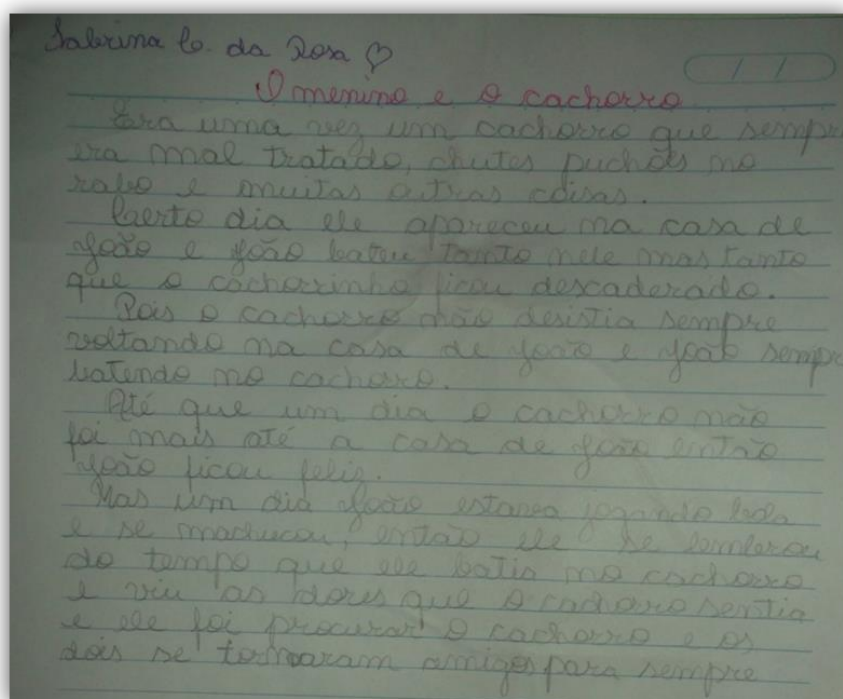 Sabrina C. da Rosa ♡
/ /
O menino e o cachorro
Era uma vez um cachorro que sempr
era mal tratado, chutes puchões no
rabo e muitas outras coisas.
Certo dia ele apareceu na casa de
João e João bateu tanto nele mas tanto
que o cachorrinho ficou descaderado.
Pois o cachorro não desistia sempre
voltando na casa de João e João sempr
batendo no cachorro.
Até que um dia o cachorro não
foi mais até a casa de João então
João ficou feliz.
Mas um dia João estava jogando bola
e se maducou, então ele se lembrou
do tempo que ele batia no cachorro
e viu as dores que o cachorro sentia
e ele foi procurar o cachorro e os
dois se tornaram amigos para sempre